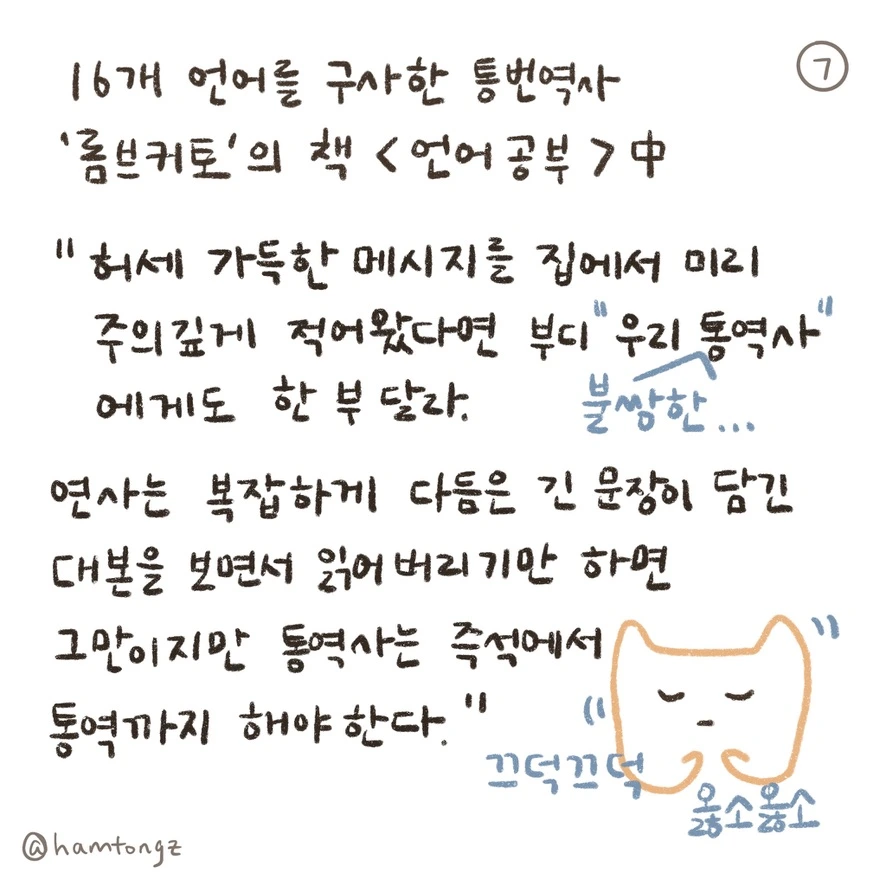 ⑦
16개 언어를 구사한 통번역사
'롬브커토'의 책 <언어공부>中
"허세 가득한 메시지를 집에서 미리
주의깊게 적어왔다면 부디 "우리 통역사"
불쌍한...
에게도 한 부 달라.
연사는 복잡하게 다듬은 긴 문장이 담긴
대본을 보면서 읽어버리기만 하면
그만이지만 통역사는 즉석에서
통역까지 해야한다."
끄덕끄덕
옳소옳소
@hamtongz